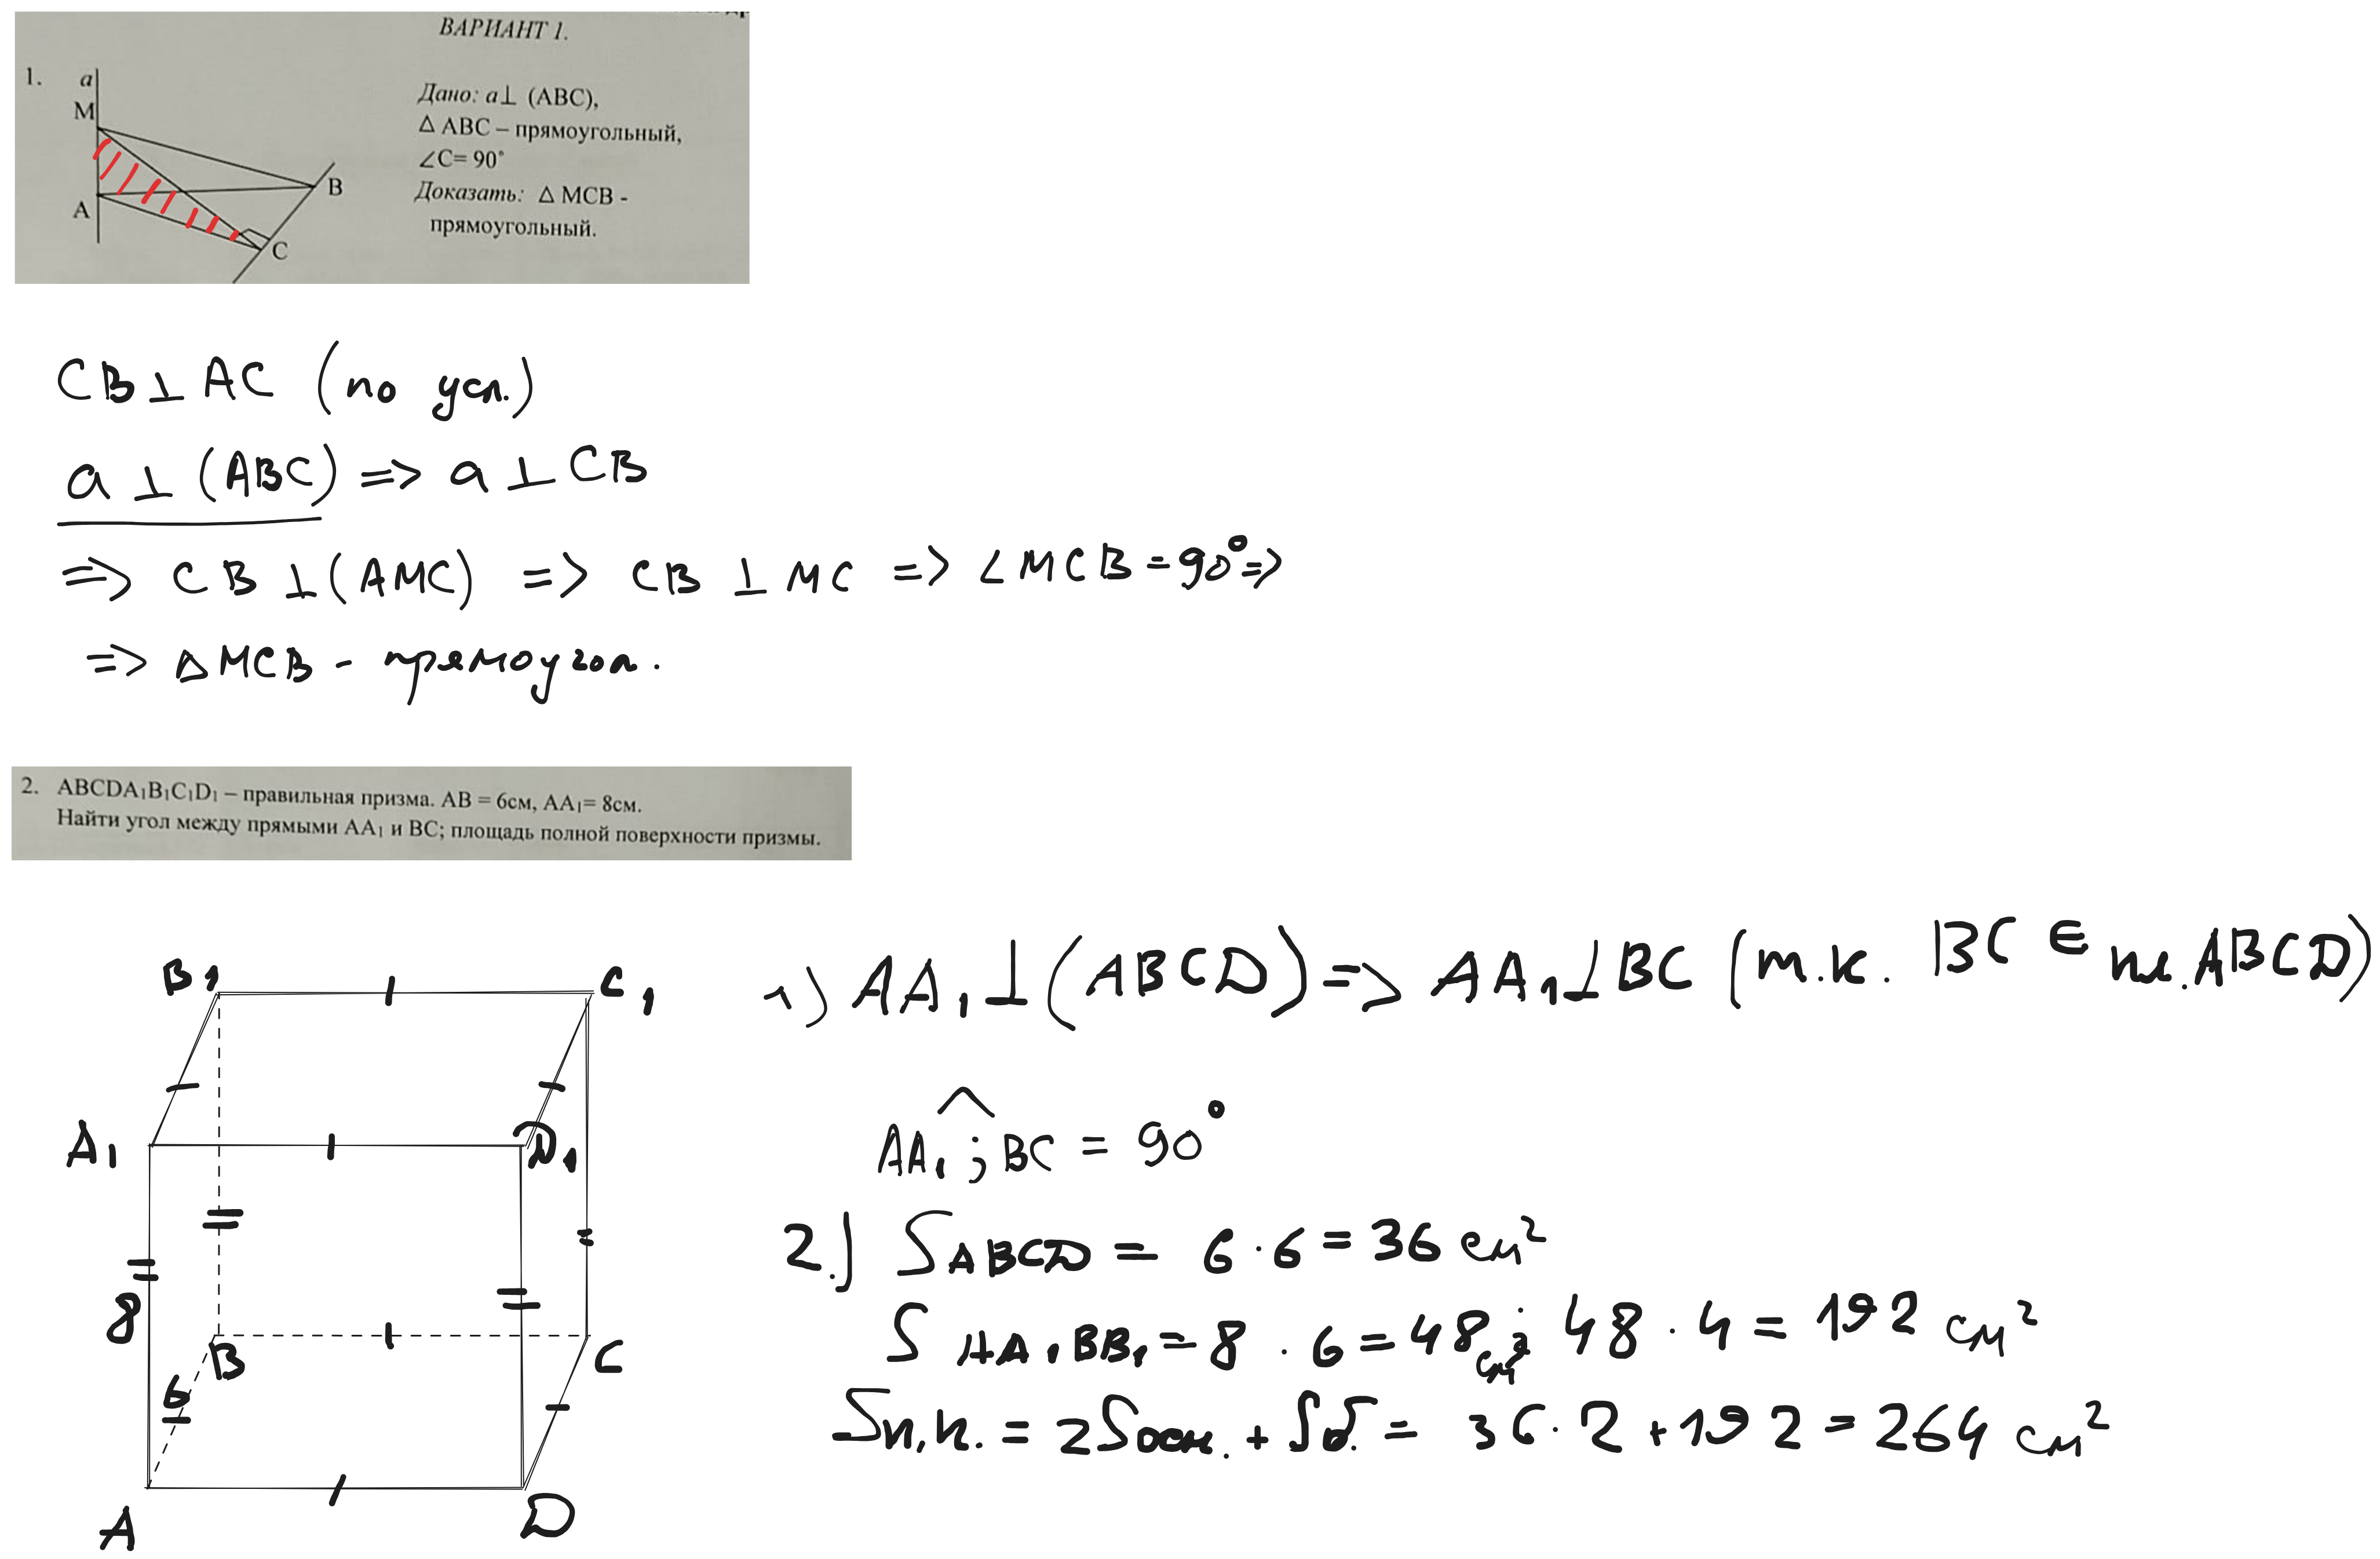 ВАРИАНТ 1.
1.
a
M
A
B
C
Дано: a⊥ (ABC),
△ ABC – прямоугольный,
∠C= 90°
Доказать: △ MCB -
прямоугольный.
CB⊥AC (по усл.)
a ⊥ (ABC) => a ⊥ CB
=> CB ⊥(AMC) => CB ⊥ MC => ∠MCB = 90° =>
=> △MCB - прямоугол.
2. ABCDA₁B₁C₁D₁ – правильная призма. AB = 6см, AA₁= 8см.
Найти угол между прямыми AA₁ и BC; площадь полной поверхности призмы.
B₁
C₁
A₁
D₁
8
B
C
6
A
D
1) AA₁⊥(ABCD) => AA₁⊥BC (т.к. BC ∈ пл.ABCD)
AA₁ ; BC = 90°
2.) SABCD = 6·6 = 36 см²
S AA₁BB₁ = 8 · 6 = 48 см²; 48 · 4 = 192 см²
Sп.п. = 2Sосн. + Sб. = 36·2 +192 = 264 см²